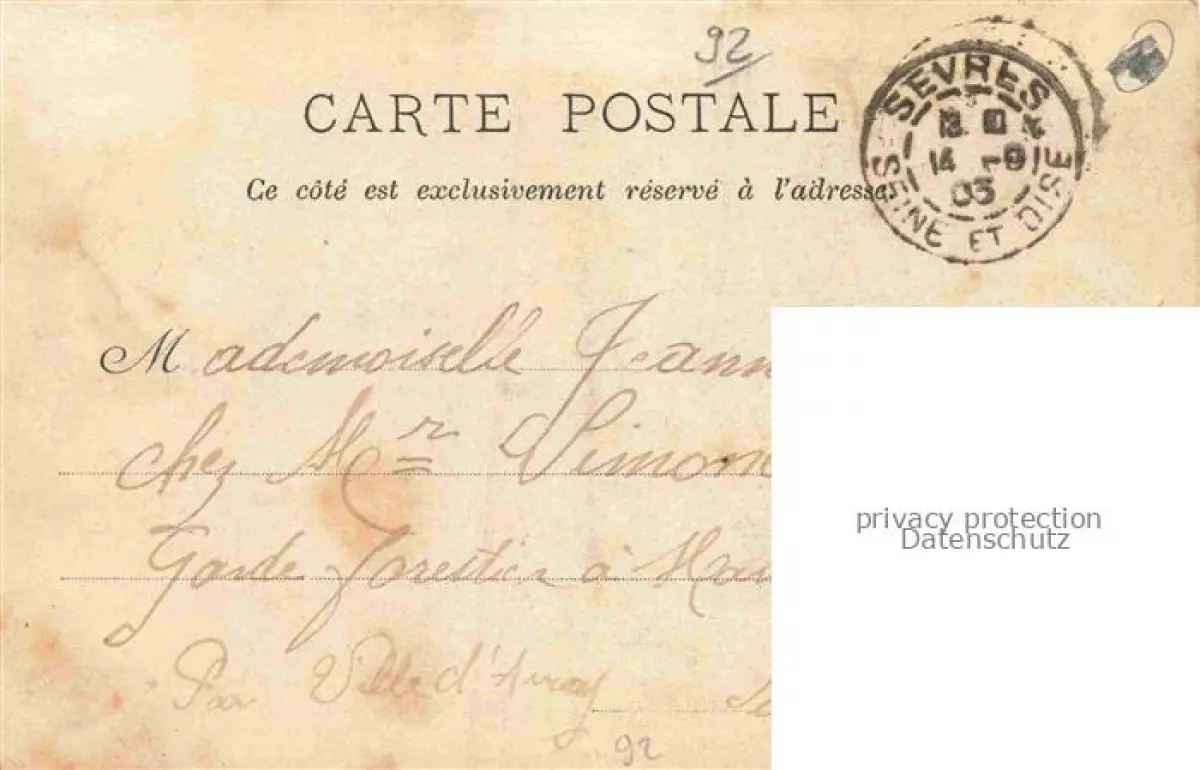 92
CARTE POSTALE
Ce côté est exclusivement réservé à l'adresse.
SEVRES
14
03
SEINE ET OISE
Mademoiselle Jeann
chez Mr Simon
Garde forestier à
Par Ville d'Avray
92
privacy protection
Datenschutz